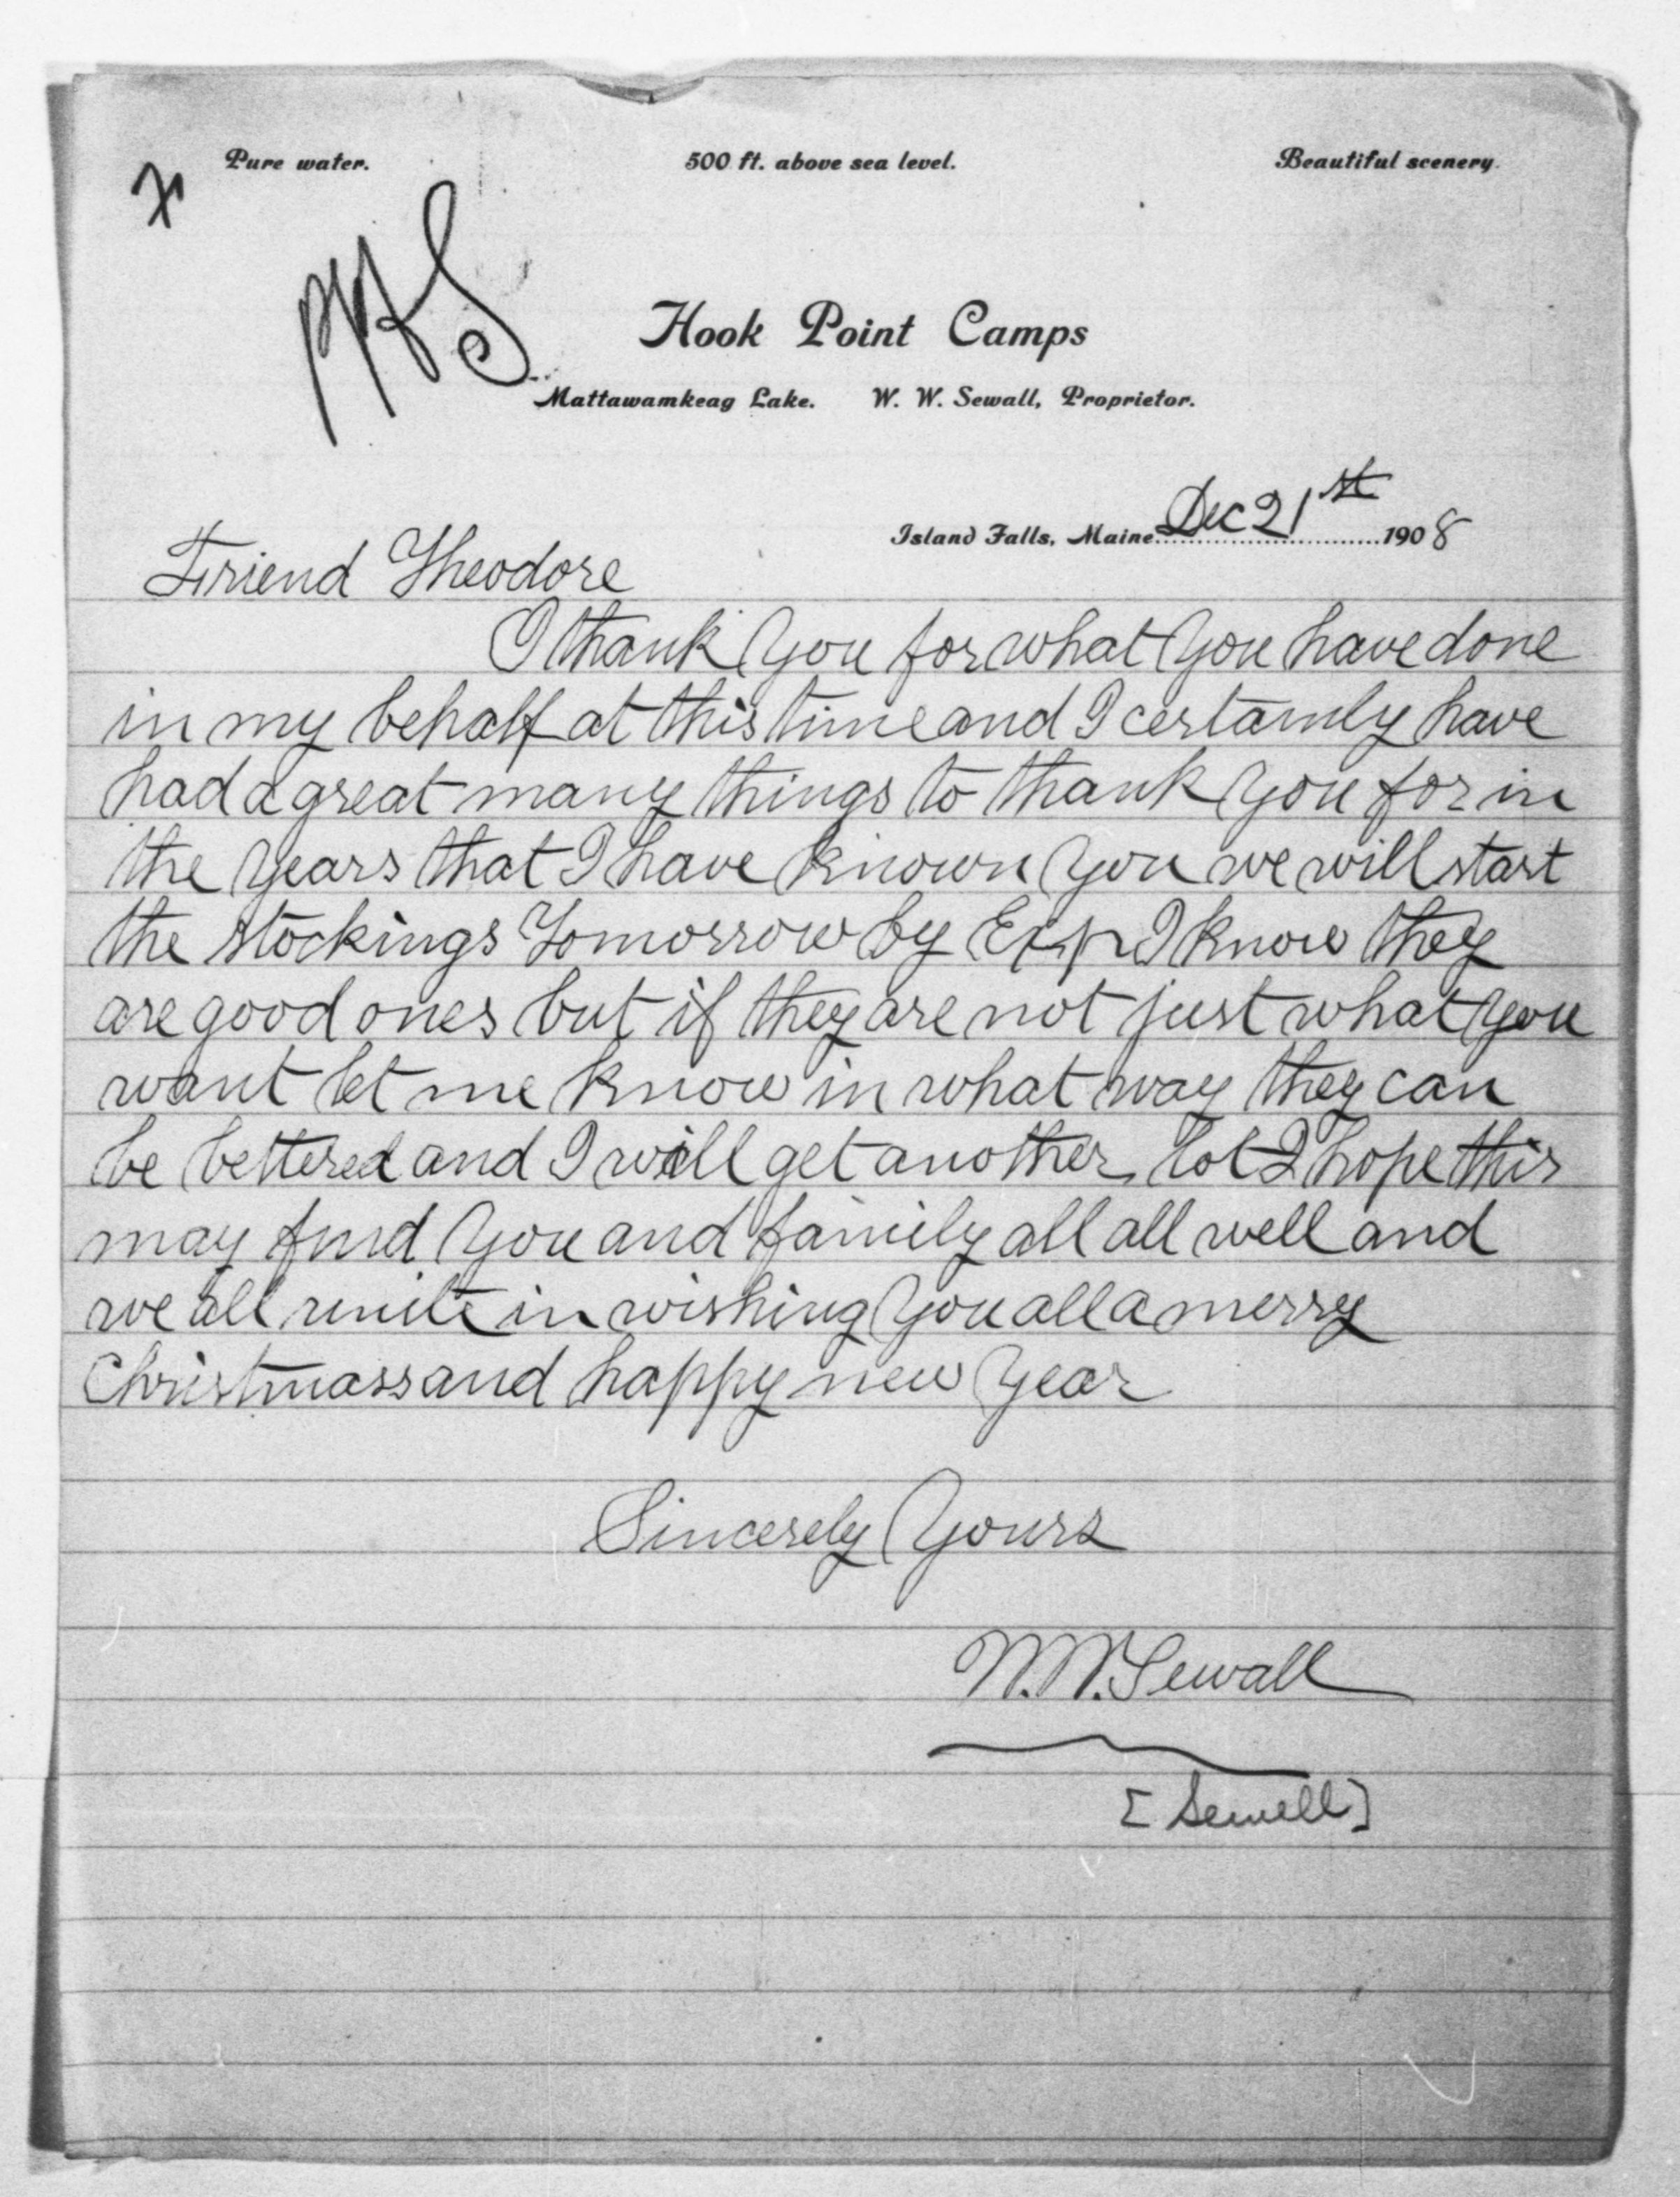 Pure water. 500 ft. above sea level. Beautiful scenery.
Hook Point Camps
Mattawamkeag Lake. W. W. Sewall, Proprietor.
Island Falls, Maine Dec 21st 1908
Friend Theodore
I thank you for what you have done
in my behalf at this time and I certainly have
had a great many things to thank you for in
the years that I have known you we will start
the stockings Tomorrow by Exp I know they
are good ones but if they are not just what you
want let me know in what way they can
be bettered and I will get another lot I hope this
may find you and family all all well and
we all unite in wishing you all a merry
Christmass and happy new year
Sincerely Yours
W. W. Sewall
[Sewell]